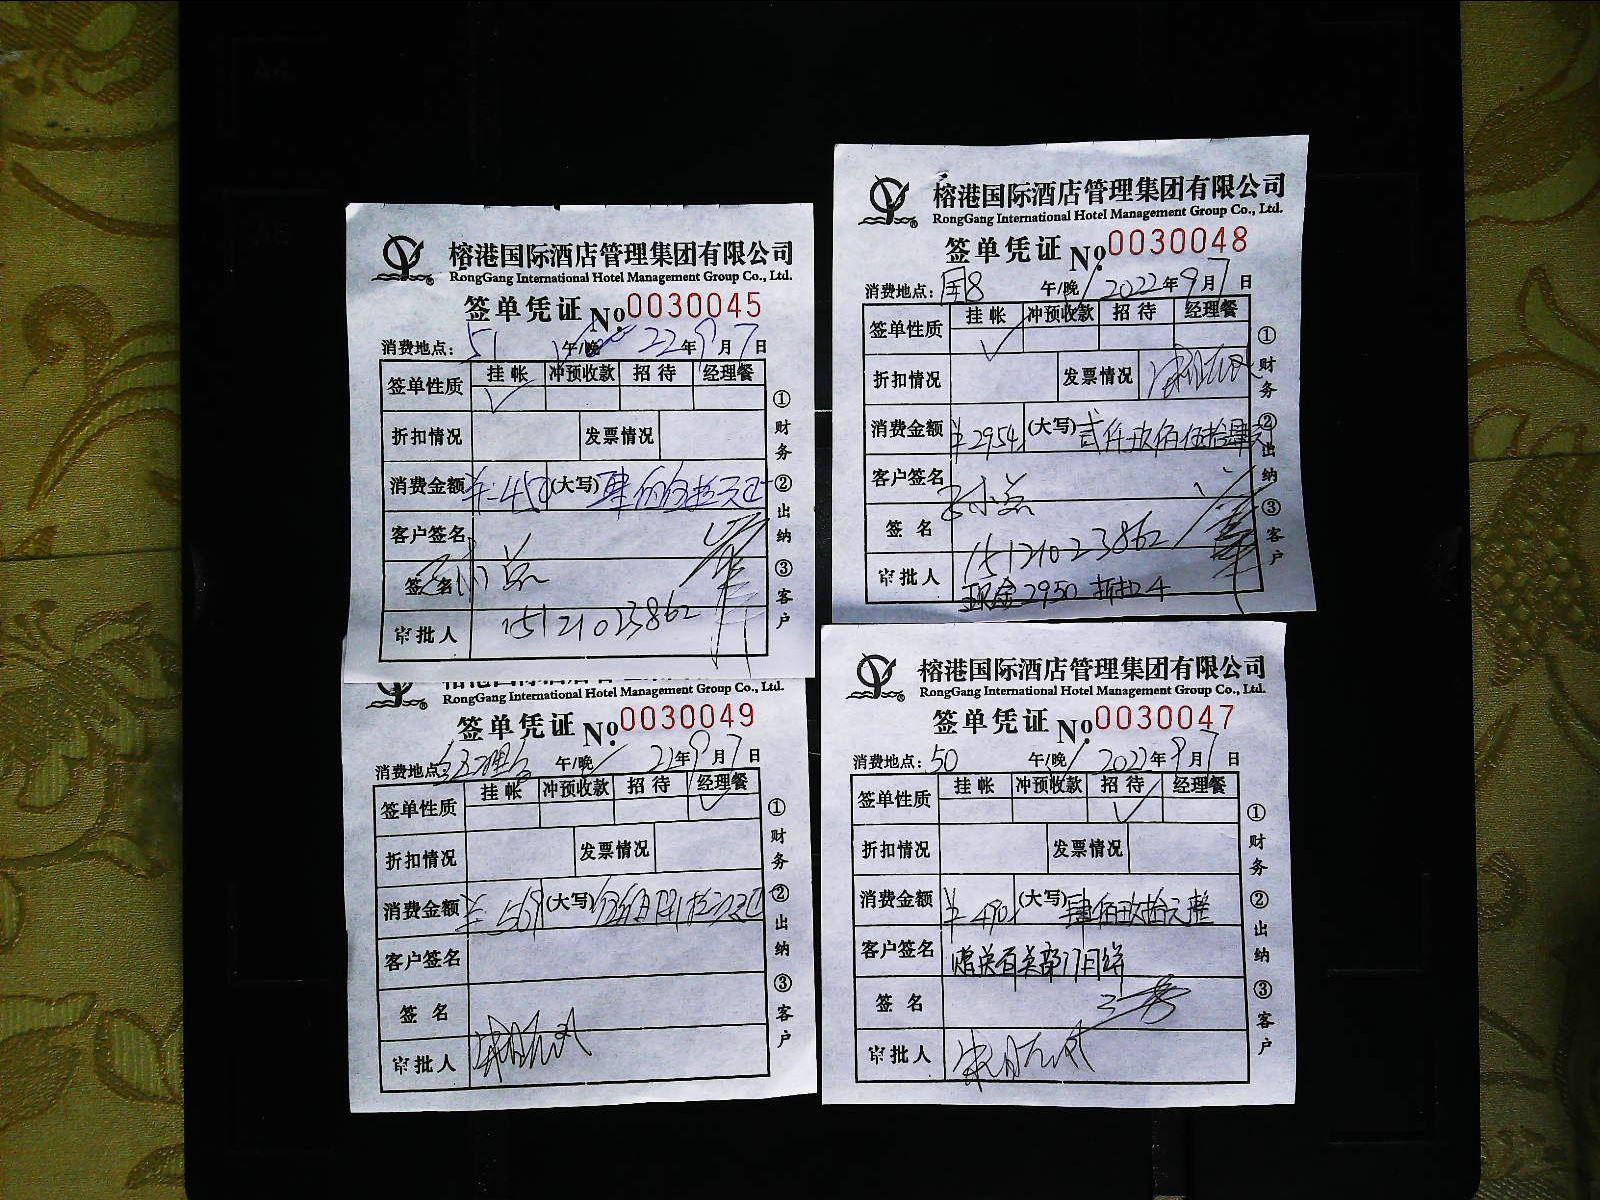 榕港国际酒店管理集团有限公司
RongGang International Hotel Management Group Co., Ltd.
签单凭证 No. 0030045
消费地点: 51 午/晚 22年9月7日
签单性质 挂帐 冲预收款 招待 经理餐
折扣情况 发票情况
消费金额 ¥:450 (大写) 肆佰伍拾元正
客户签名
签名
审批人 15121023862
①财务 ②出纳 ③客户
榕港国际酒店管理集团有限公司
RongGang International Hotel Management Group Co., Ltd.
签单凭证 No. 0030048
消费地点: 国8 午/晚 2022年9月7日
签单性质 挂帐 冲预收款 招待 经理餐
折扣情况 发票情况
消费金额 ¥2954 (大写) 贰仟玖佰伍拾肆元
客户签名
签名 15121023862
审批人 现金2950 折扣4
①财务 ②出纳 ③客户
榕港国际酒店管理集团有限公司
RongGang International Hotel Management Group Co., Ltd.
签单凭证 No. 0030049
消费地点: 午/晚 22年9月7日
签单性质 挂帐 冲预收款 招待 经理餐
折扣情况 发票情况
消费金额 ¥ (大写)
客户签名
签名
审批人
①财务 ②出纳 ③客户
榕港国际酒店管理集团有限公司
RongGang International Hotel Management Group Co., Ltd.
签单凭证 No. 0030047
消费地点: 50 午/晚 2022年9月7日
签单性质 挂帐 冲预收款 招待 经理餐
折扣情况 发票情况
消费金额 ¥490 (大写) 肆佰玖拾元整
客户签名
签名
审批人
①财务 ②出纳 ③客户